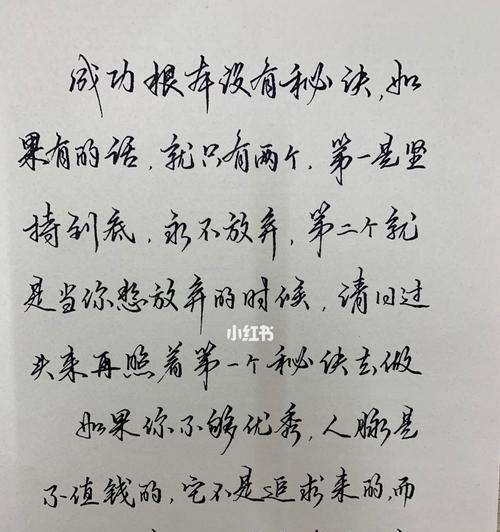 成功根本没有秘诀,如
果有的话,就只有两个,第一是坚
持到底,永不放弃,第二个就
是当你想放弃的时候,请回过
小红书
头来再照着第一个秘诀去做
如果你不够优秀,人脉是
不值钱的,它不是追求来的,而